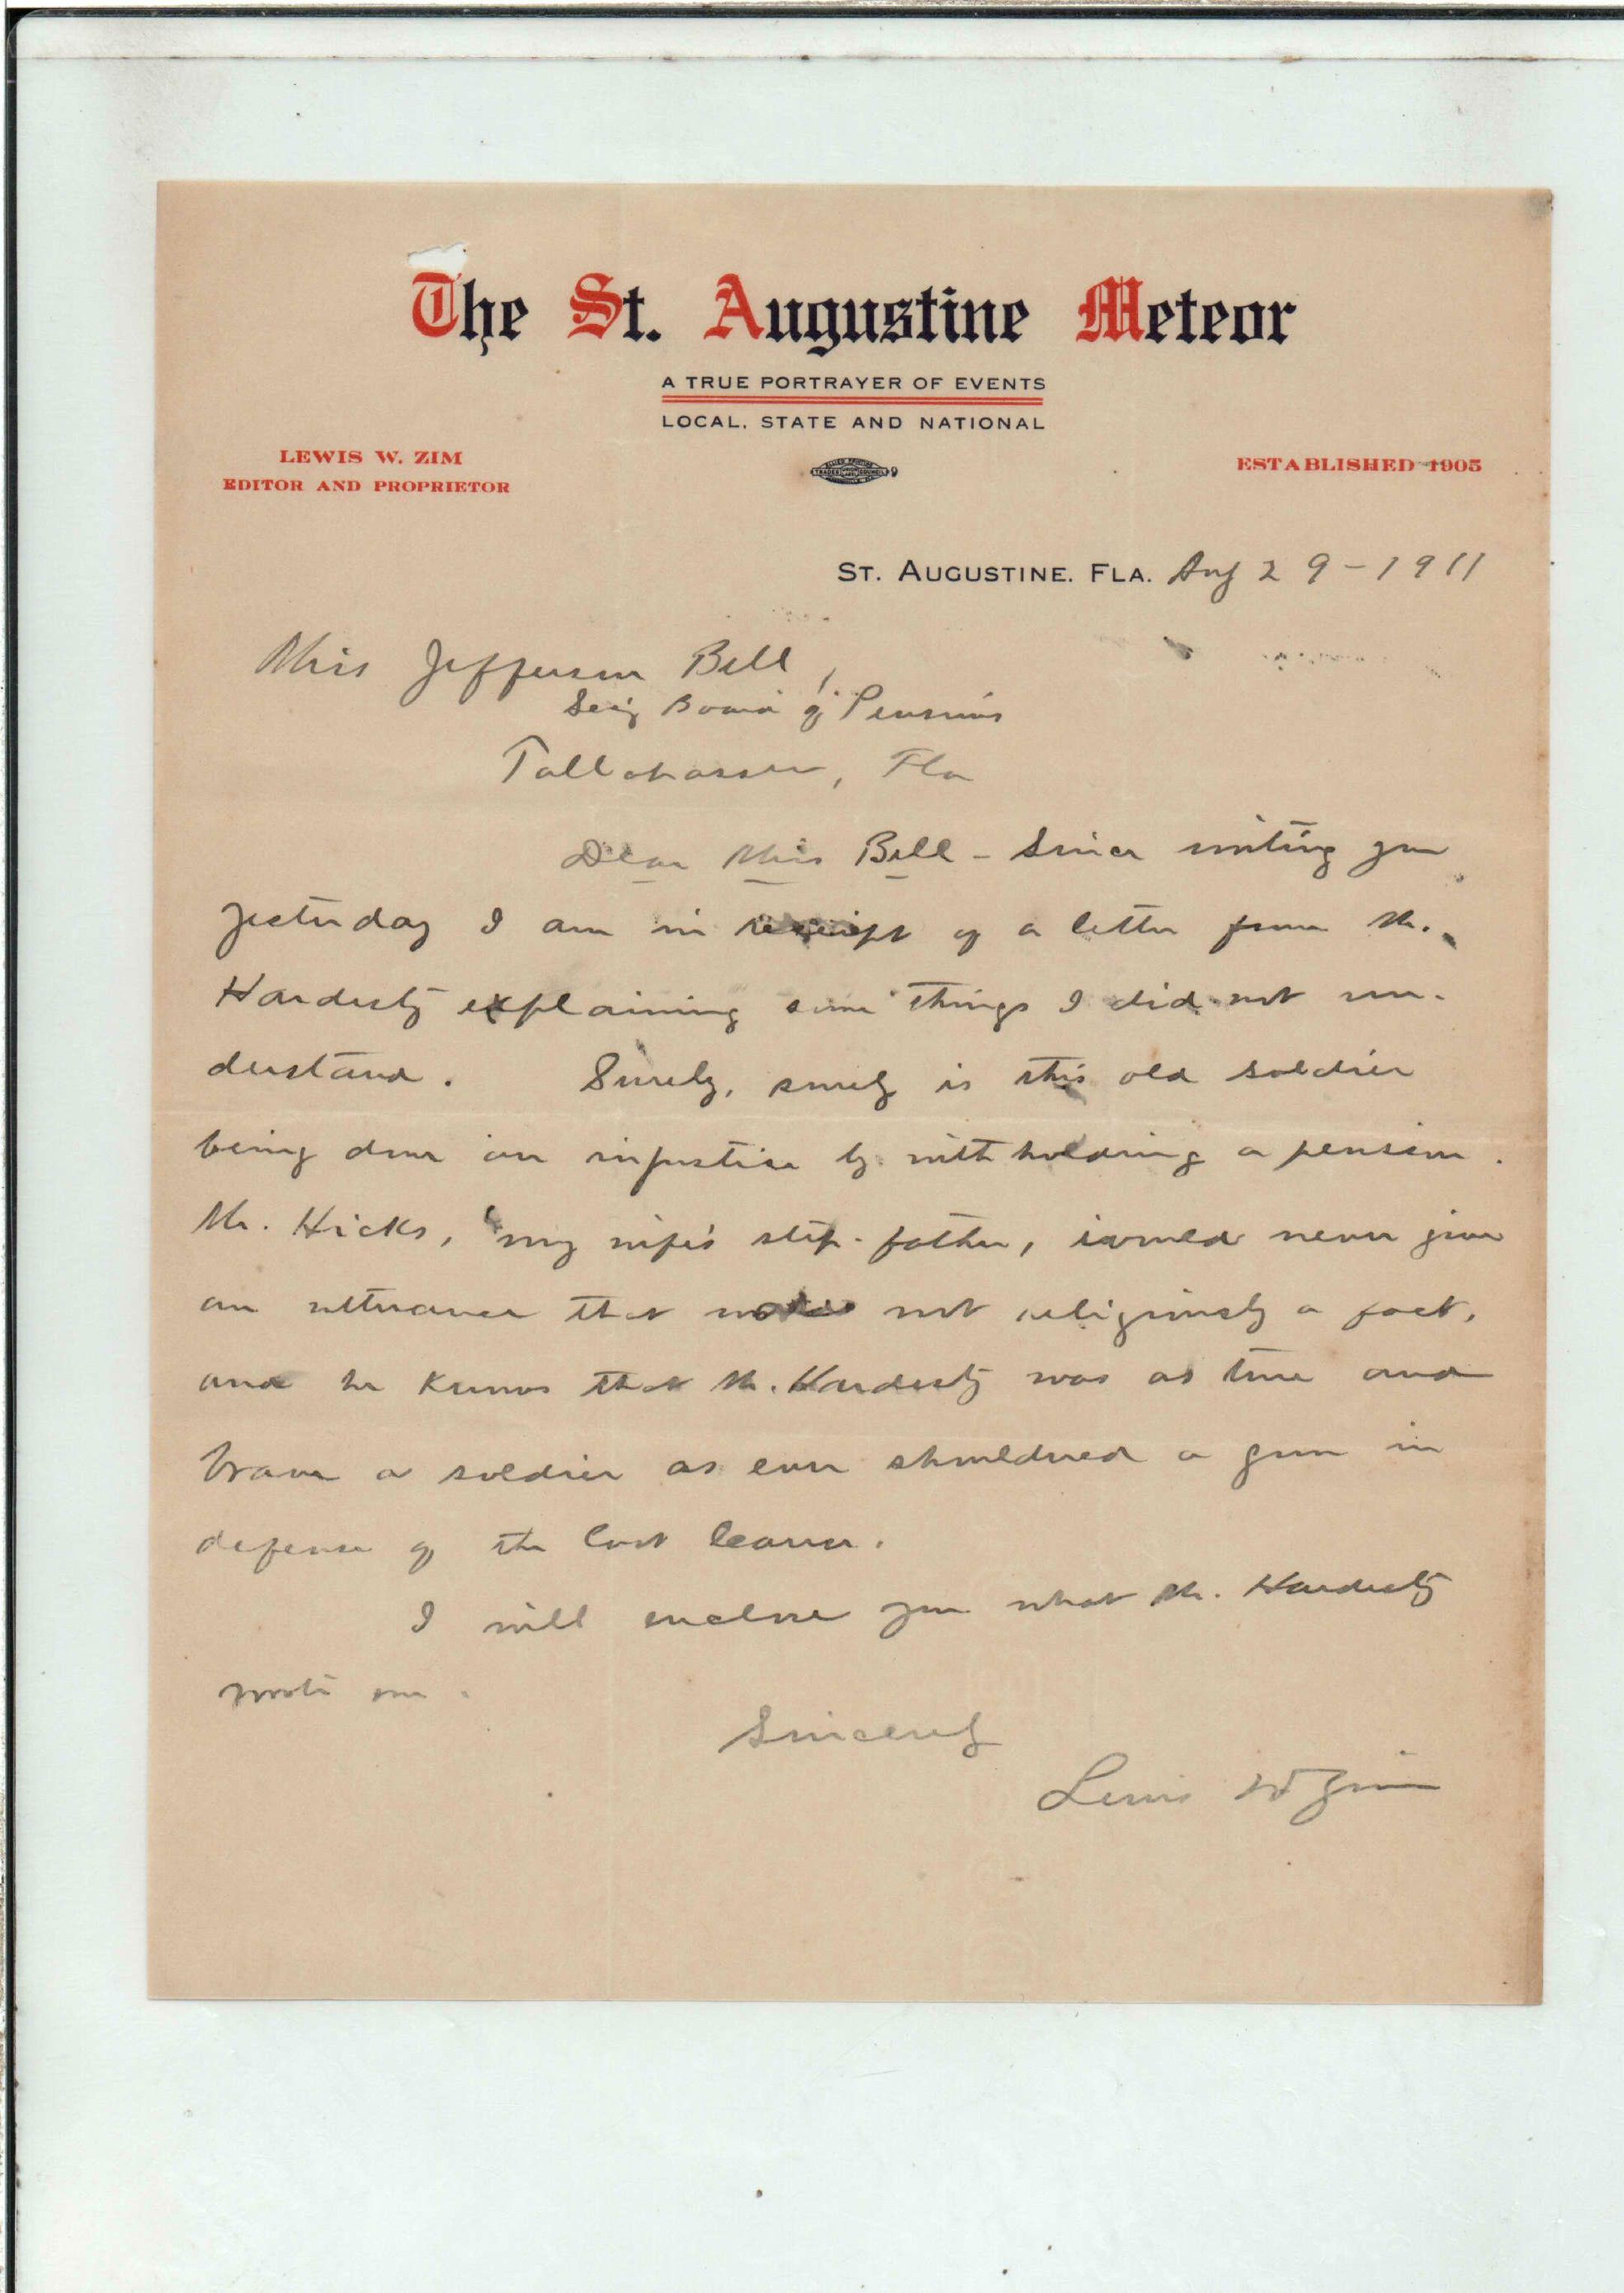 The St. Augustine Meteor
A TRUE PORTRAYER OF EVENTS
LOCAL, STATE AND NATIONAL
LEWIS W. ZIM
EDITOR AND PROPRIETOR
ESTABLISHED 1905
ST. AUGUSTINE. FLA. Aug 29-1911
Miss Jefferson Bell,
Sec'y Board of Pensions
Tallahassee, Fla
Dear Miss Bell - Since writing you
yesterday I am in receipt of a letter from Mr.
Hardesty explaining some things I did not un-
derstand. Surely, surely is this old soldier
being done an injustice by withholding a pension.
Mr. Hicks, my wife's step-father, would never give
an utterance that was not religiously a fact,
and he knows that Mr. Hardesty was as true and
brave a soldier as ever shouldered a gun in
defense of the lost cause.
I will enclose you what Mr. Hardesty
wrote me.
Sincerely
Lewis W Zim